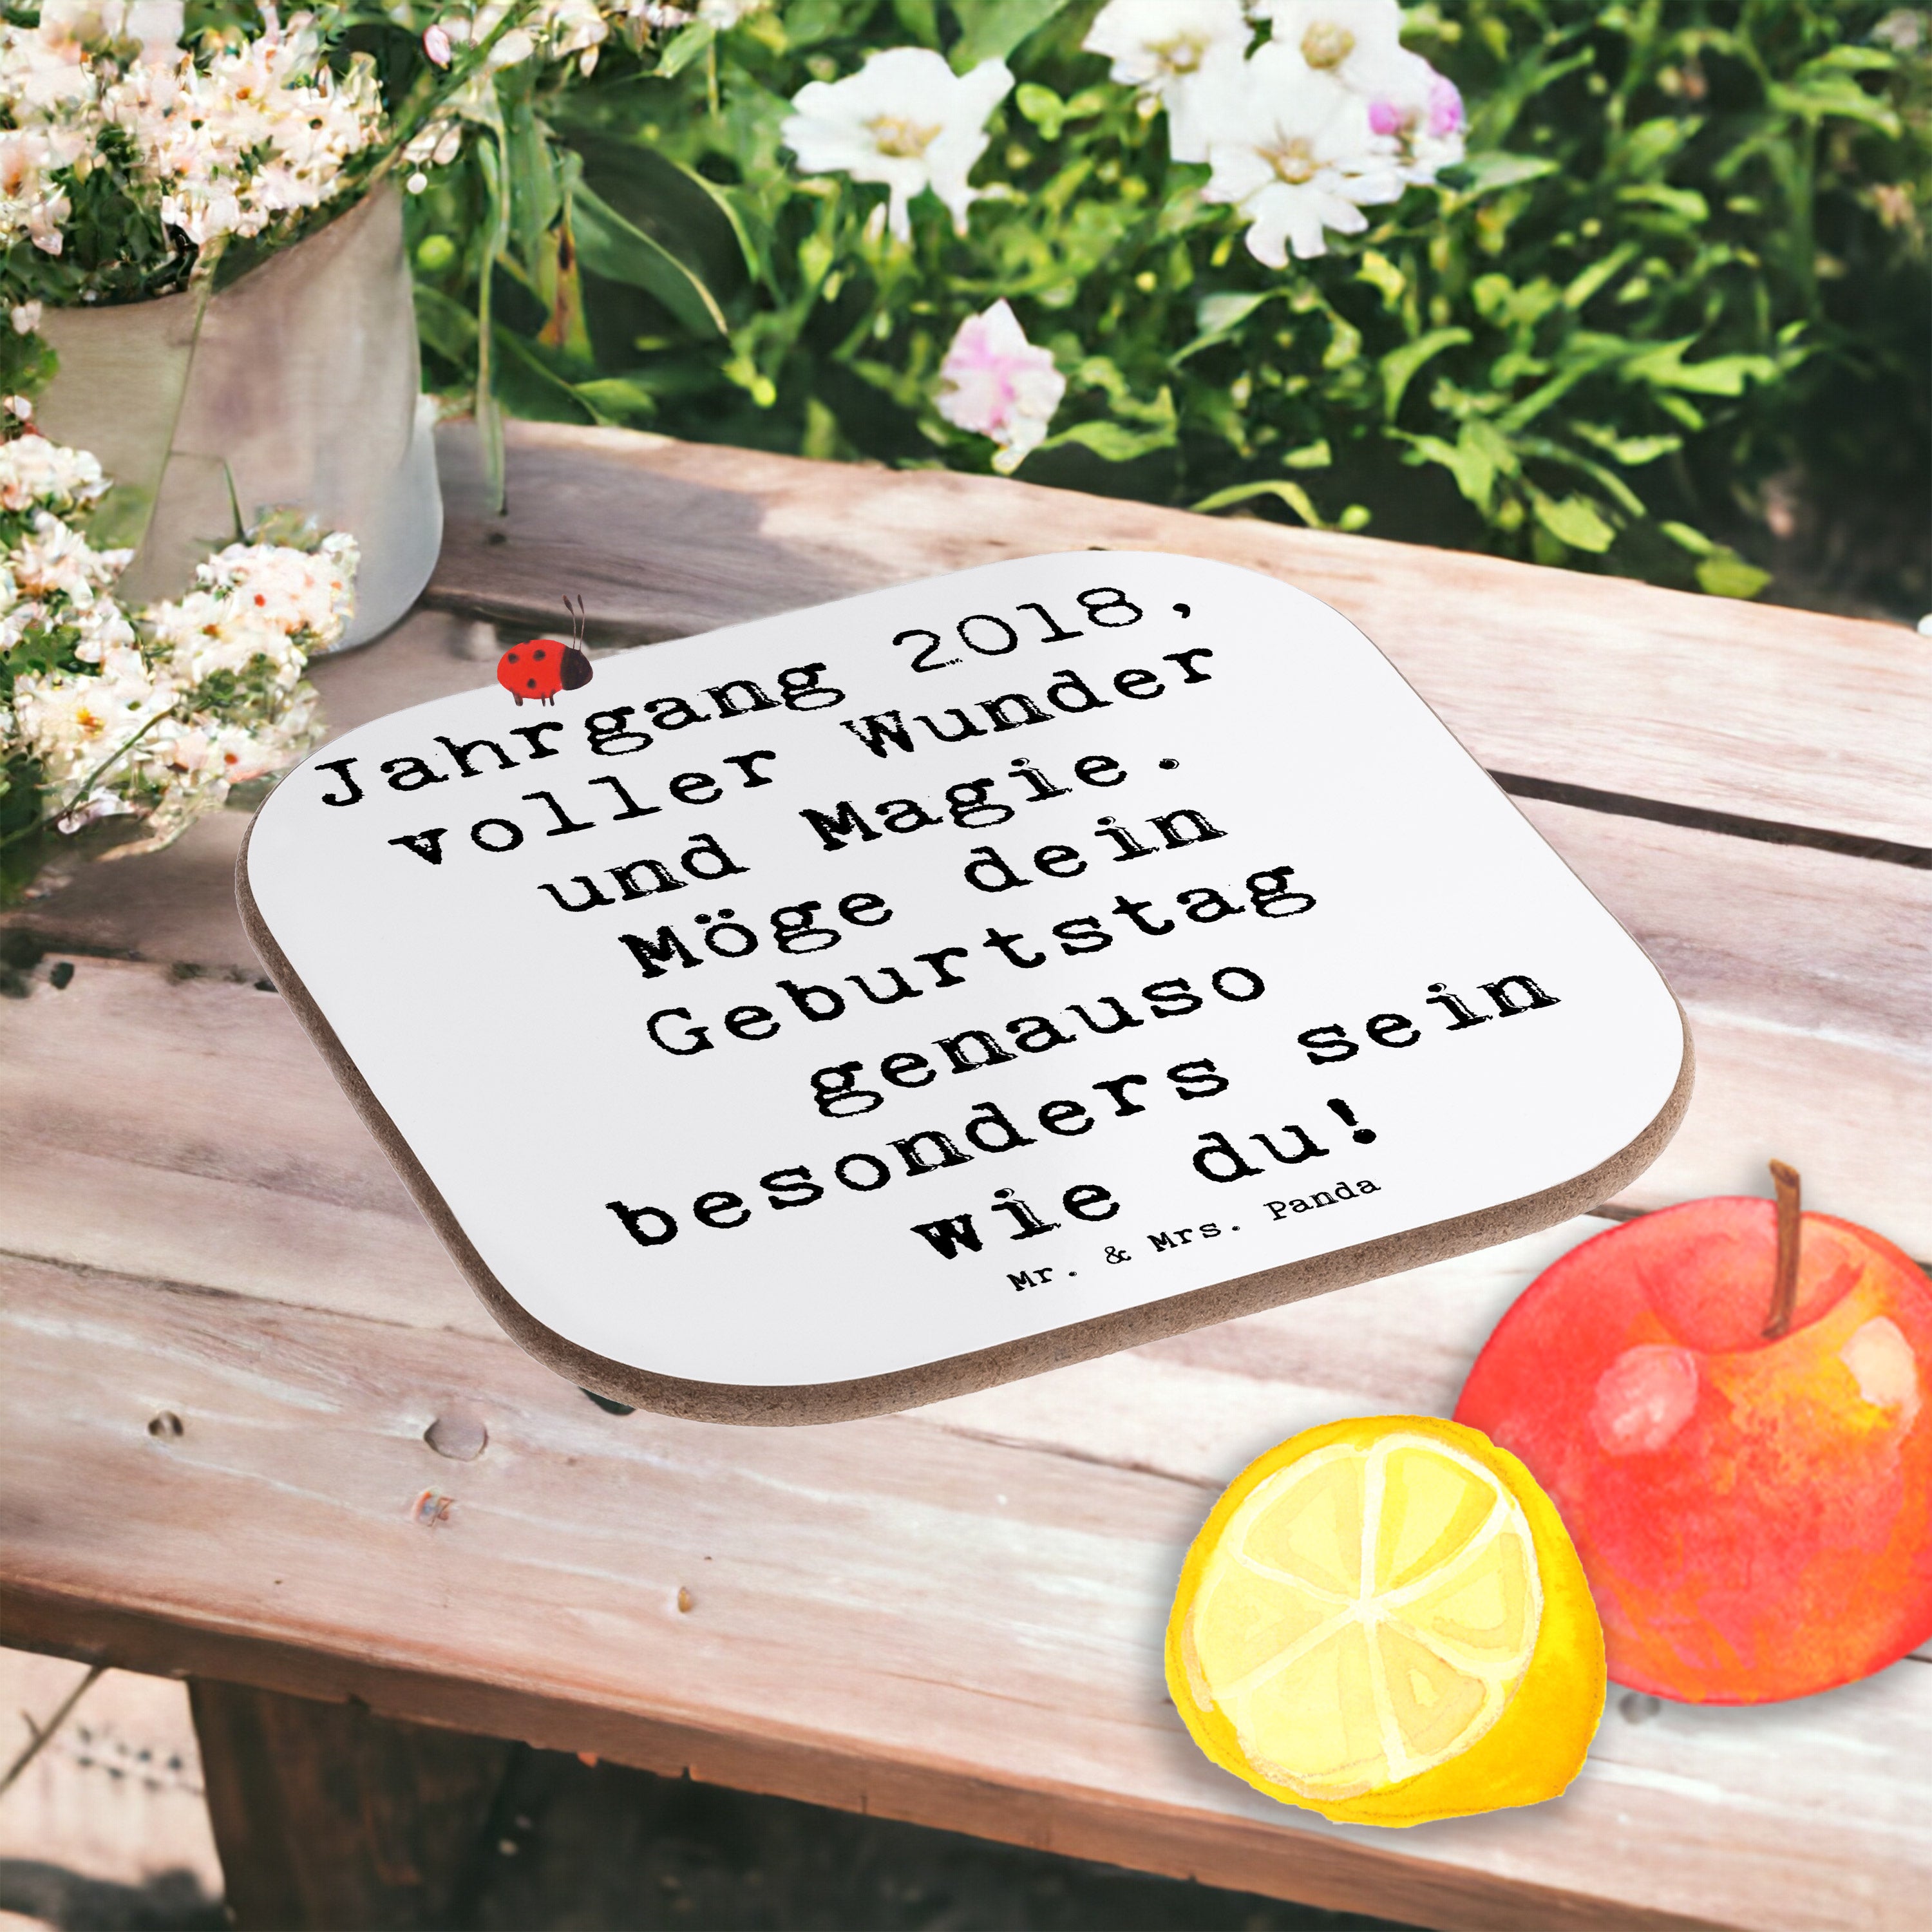 Jahrgang 2018,
voller Wunder
und Magie.
Möge dein
Geburtstag
genauso
besonders sein
wie du!
Mr. & Mrs. Panda